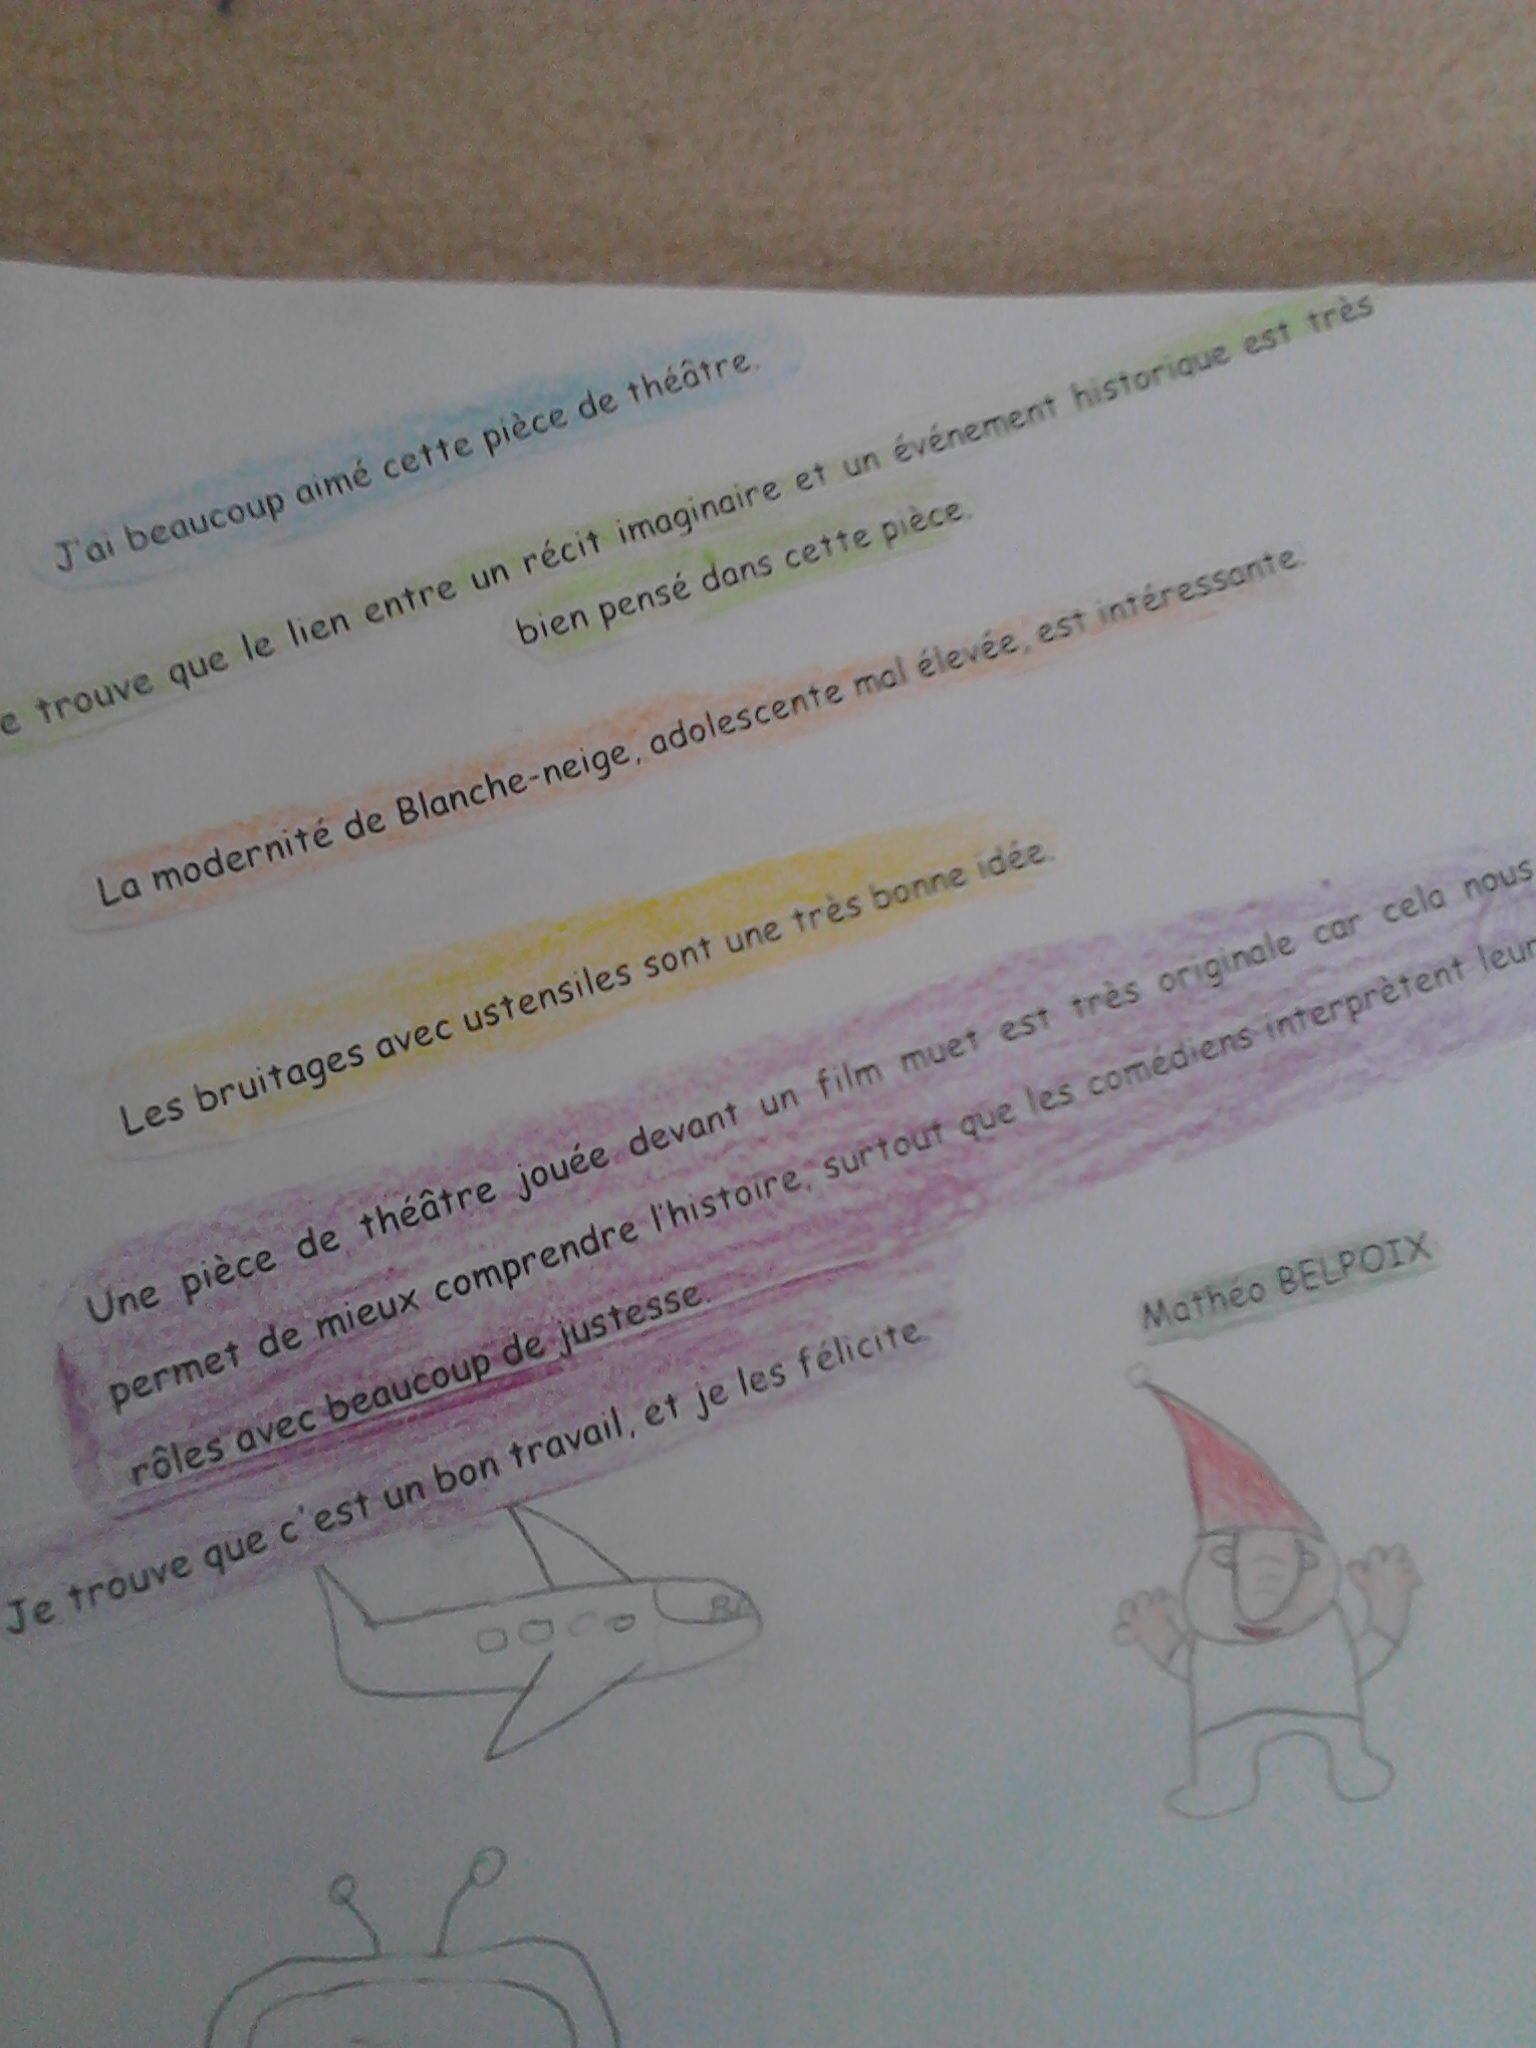 J'ai beaucoup aimé cette pièce de théâtre.
e trouve que le lien entre un récit imaginaire et un événement historique est très
bien pensé dans cette pièce.
La modernité de Blanche-neige, adolescente mal élevée, est intéressante.
Les bruitages avec ustensiles sont une très bonne idée.
Une pièce de théâtre jouée devant un film muet est très originale car cela nous
permet de mieux comprendre l'histoire, surtout que les comédiens interprètent leur
rôles avec beaucoup de justesse.
Je trouve que c'est un bon travail, et je les félicite.
Mathéo BELPOIX